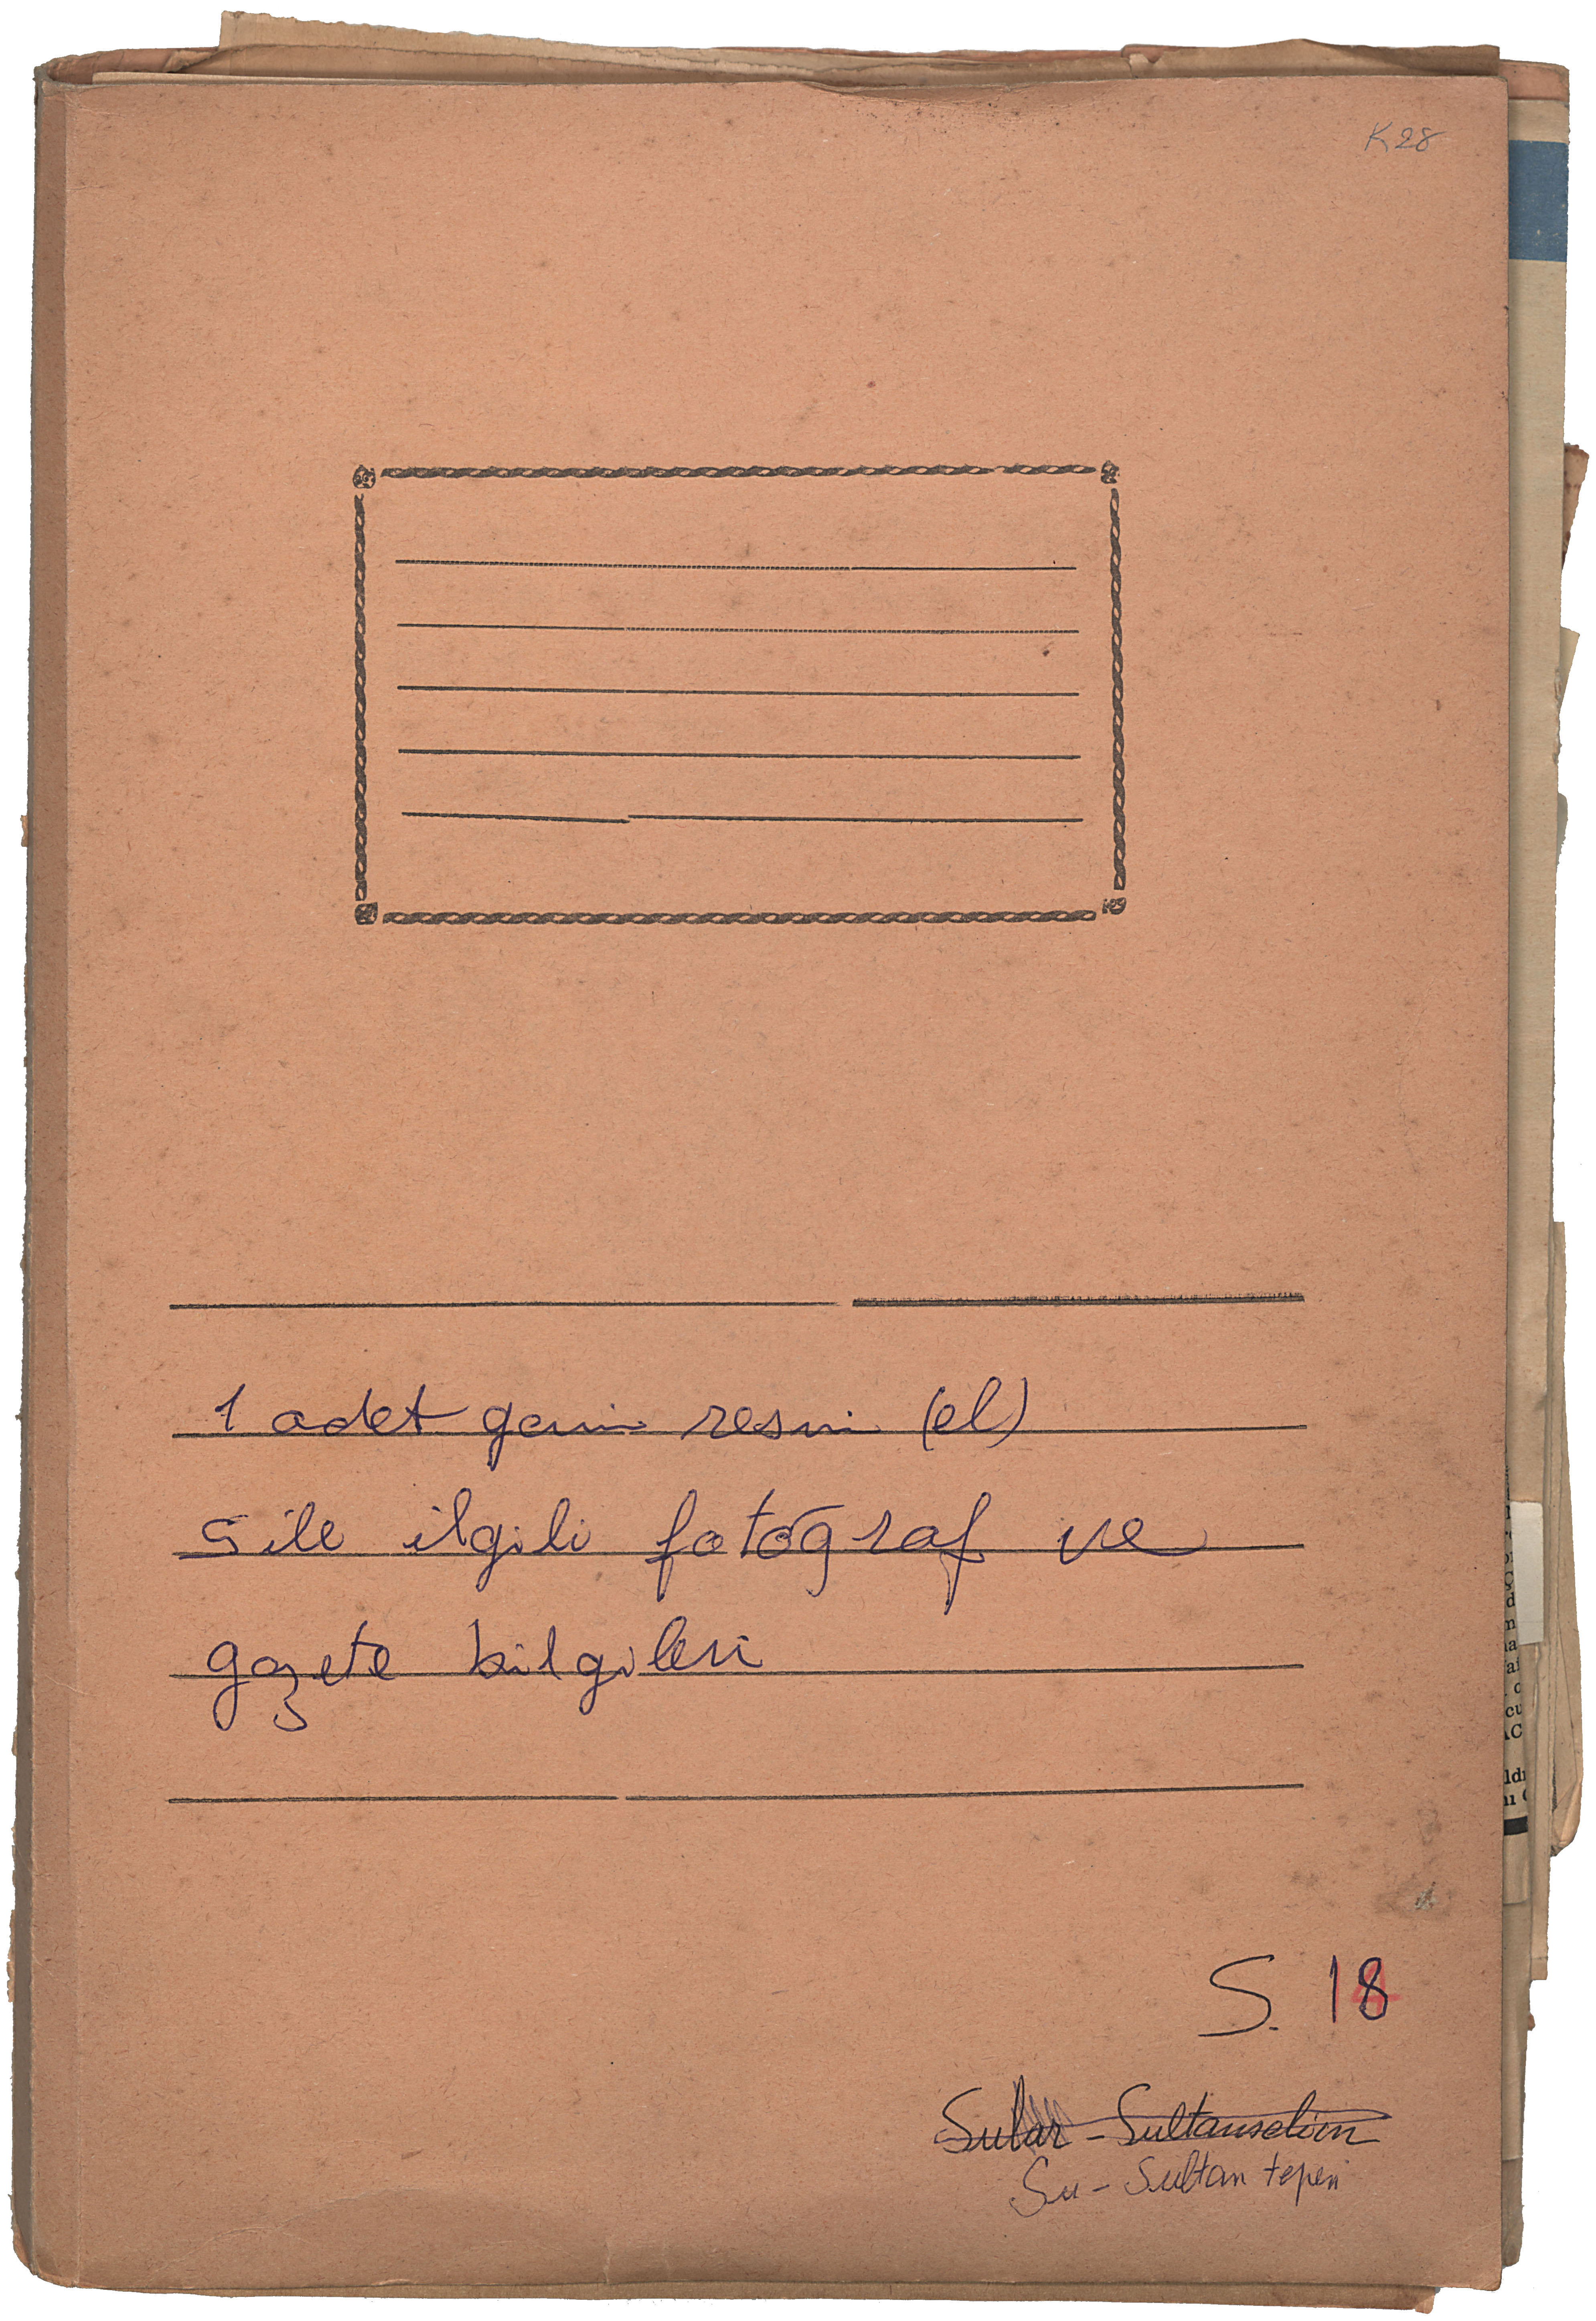 K28
1 adet gemi resmi (el)
S ile ilgili fotoğraf ve
gazete bilgileri
S. 18
Sular - Sultanselim
Su - Sultan tepesi